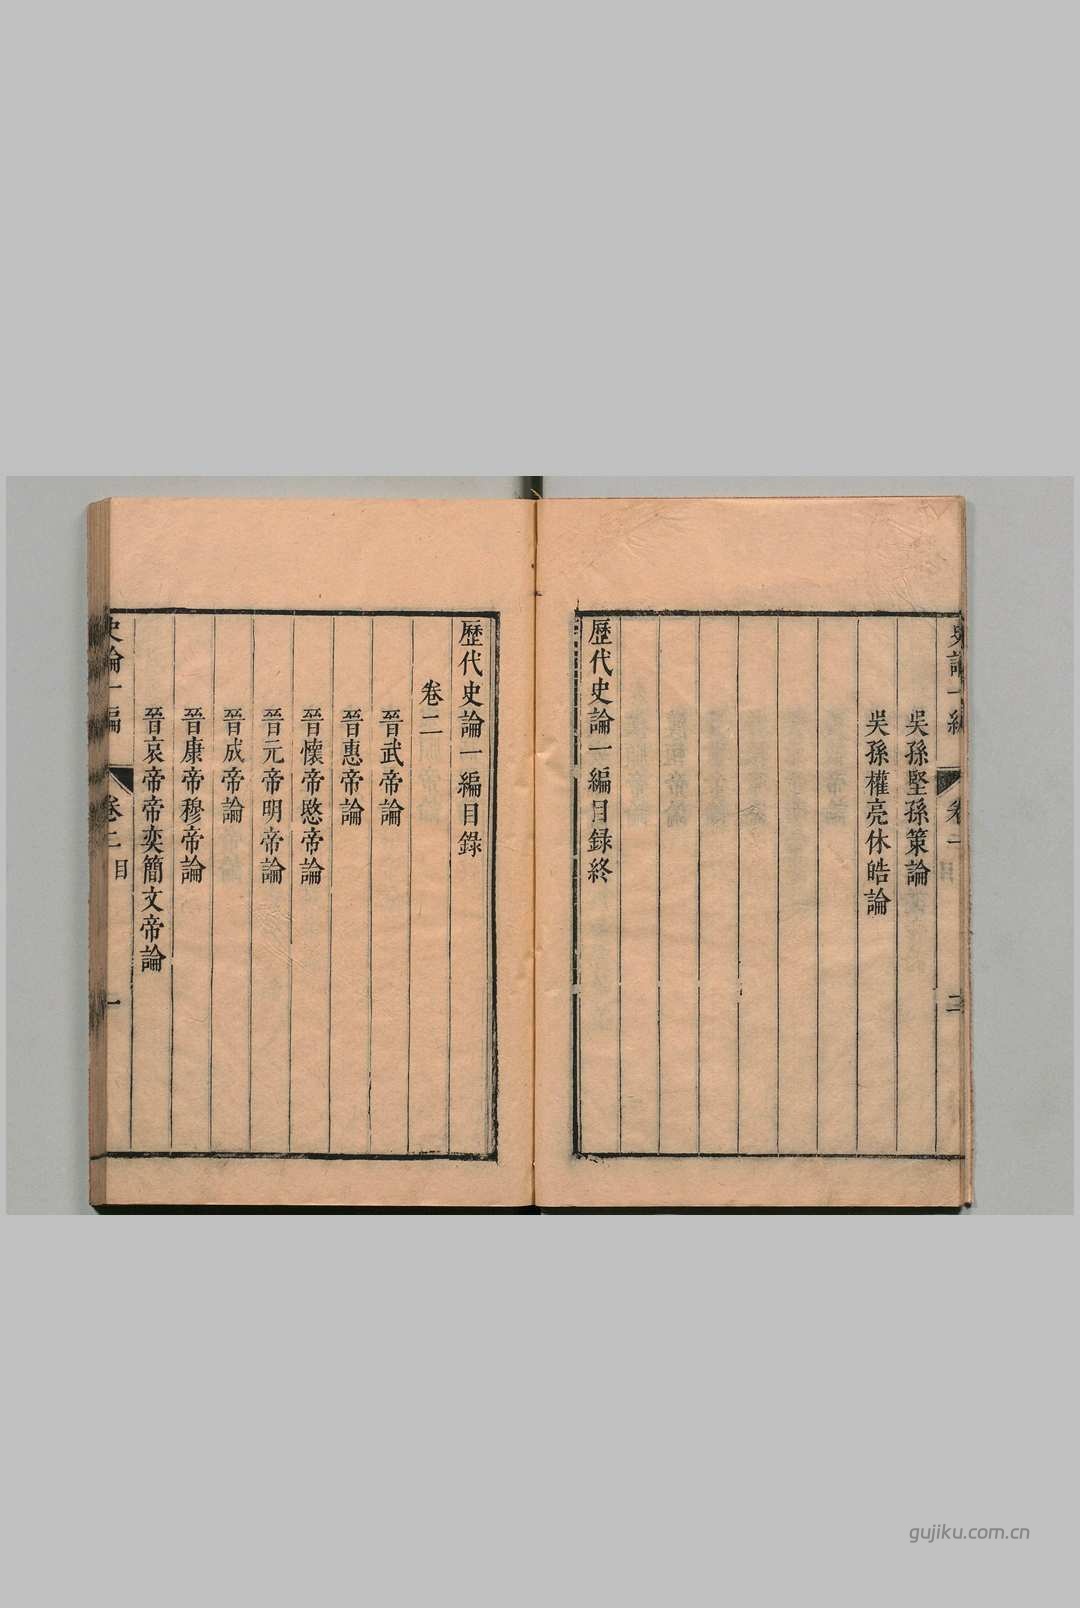 史論一編
卷一
二
吳孫堅孫策論
吳孫權亮休皓論
歷代史論一編目錄終
歷代史論一編目錄
卷二
晉武帝論
晉惠帝論
晉懷帝愍帝論
晉元帝明帝論
晉成帝論
晉康帝穆帝論
晉哀帝帝奕簡文帝論
史論一編
卷二
目
一
gujiku.com.cn